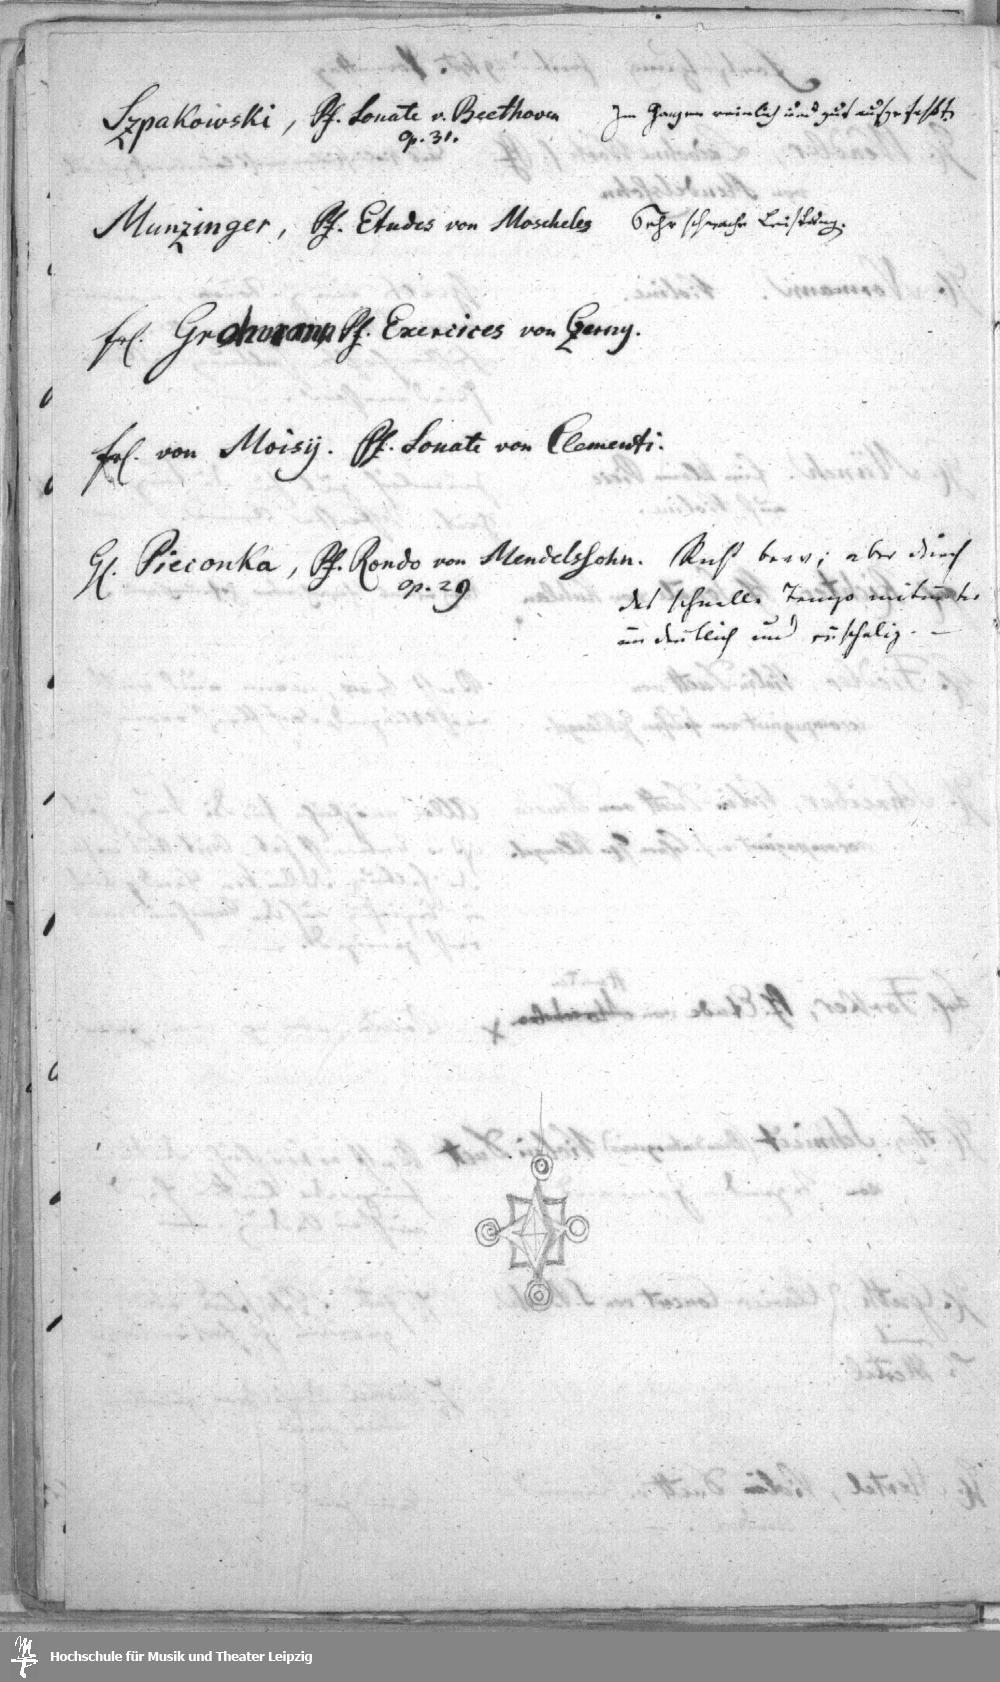 Szpakowski, Pf. Sonate v. Beethoven Im Ganzen reinlich und gut aufgefaßt
op. 31.
Munzinger, Pf. Etudes von Moscheles Sehr schwache Leistung.
Frl. Pf. Exercices von Czerny.
Frl. von Moisy. Pf. Sonate von Clementi.
H. Pieconka, Pf. Rondo von Mendelssohn. Recht brav; aber durch
op. 29 das schnelle Tempo mitunter
undeutlich und
Hochschule für Musik und Theater Leipzig